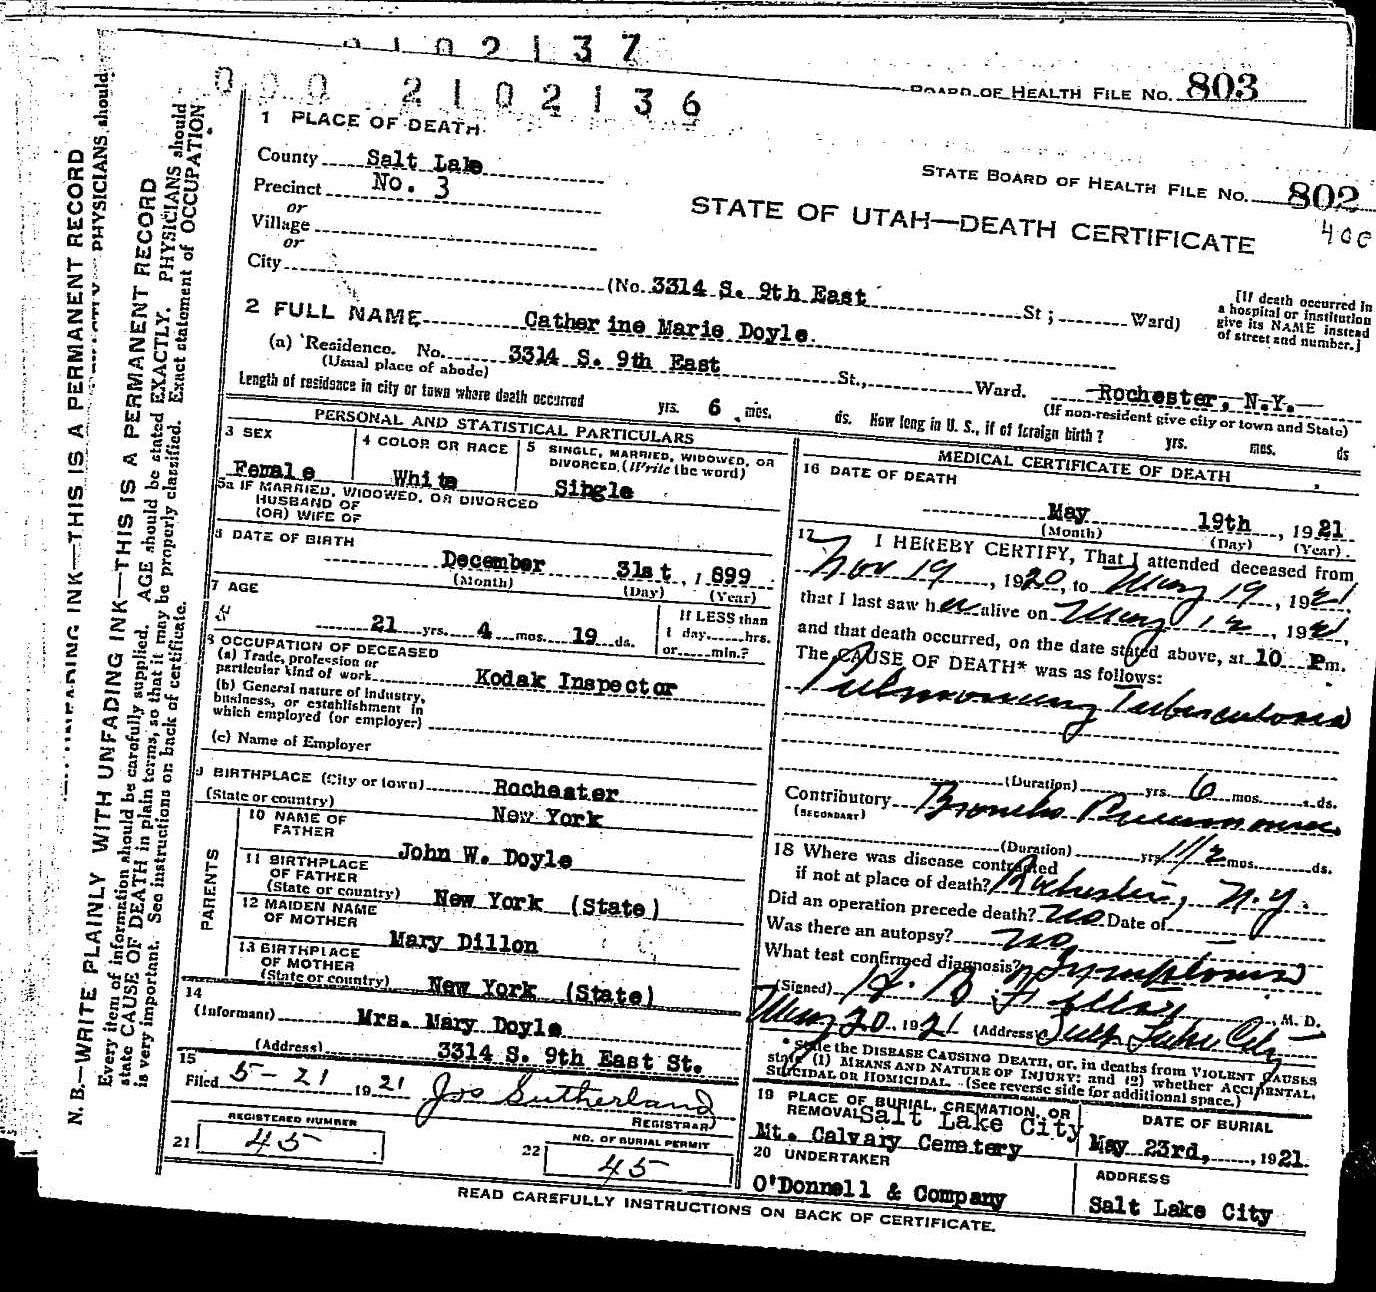 0102137
BOARD OF HEALTH FILE NO. 803
000 2102136
1 PLACE OF DEATH
STATE BOARD OF HEALTH FILE NO. 802
County Salt Lake
Precinct No. 3
or
Village
or
City
STATE OF UTAH—DEATH CERTIFICATE
400
(No. 3314 S. 9th East St; Ward)
[If death occurred in
a hospital or institution
give its NAME instead
of street and number.]
2 FULL NAME Catherine Marie Doyle.
(a) Residence. No. 3314 S. 9th East St., Ward. Rochester, N.Y.
(Usual place of abode) (If non-resident give city or town and State)
Length of residence in city or town where death occurred yrs. 6 mos. ds. How long in U. S., if of foreign birth? yrs. mos. ds
PERSONAL AND STATISTICAL PARTICULARS
3 SEX
Female
4 COLOR OR RACE
White
5 SINGLE, MARRIED, WIDOWED, OR
DIVORCED, (Write the word)
Single
5a IF MARRIED, WIDOWED, OR DIVORCED
HUSBAND OF
(OR) WIFE OF
6 DATE OF BIRTH
December 31st, 1899
(Month) (Day) (Year)
7 AGE
21 yrs. 4 mos. 19 ds.
If LESS than
1 day hrs.
or min.?
8 OCCUPATION OF DECEASED
(a) Trade, profession or
particular kind of work Kodak Inspector
(b) General nature of industry,
business, or establishment in
which employed (or employer)
(c) Name of Employer
9 BIRTHPLACE (City or town) Rochester
(State or country) New York
PARENTS
10 NAME OF
FATHER John W. Doyle
11 BIRTHPLACE
OF FATHER
(State or country) New York (State)
12 MAIDEN NAME
OF MOTHER Mary Dillon
13 BIRTHPLACE
OF MOTHER
(State or country) New York (State)
14
(Informant) Mrs. Mary Doyle
(Address) 3314 S. 9th East St.
15
Filed 5-21 1921 Jos Sutherland
REGISTRAR)
REGISTERED NUMBER
21 45
NO. OF BURIAL PERMIT
22 45
MEDICAL CERTIFICATE OF DEATH
16 DATE OF DEATH
May 19th, 1921
(Month) (Day) (Year)
17 I HEREBY CERTIFY, That I attended deceased from
Nov 19, 1920, to May 19, 1921,
that I last saw her alive on May 12, 1921,
and that death occurred, on the date stated above, at 10 Pm.
The CAUSE OF DEATH* was as follows:
Pulmonary Tuberculosis
(Duration) yrs. 6 mos. ds.
Contributory Broncho Pneumonia
(SECONDARY)
(Duration) yrs. 1 1/2 mos. ds.
18 Where was disease contracted
if not at place of death? Rochester, N.Y.
Did an operation precede death? no Date of
Was there an autopsy? no
What test confirmed diagnosis? Symptoms
(Signed) H. B. M. D.
May 20, 1921 (Address) Salt Lake City
* State the DISEASE CAUSING DEATH, or, in deaths from VIOLENT CAUSES
state (1) MEANS AND NATURE OF INJURY; and (2) whether ACCIDENTAL,
SUICIDAL OR HOMICIDAL. (See reverse side for additional space.)
19 PLACE OF BURIAL, CREMATION, OR
REMOVAL Salt Lake City
Mt. Calvary Cemetery
DATE OF BURIAL
May 23rd, 1921.
20 UNDERTAKER
O'Donnell & Company
ADDRESS
Salt Lake City
READ CAREFULLY INSTRUCTIONS ON BACK OF CERTIFICATE.
N. B.—WRITE PLAINLY WITH UNFADING INK—THIS IS A PERMANENT RECORD
Every item of information should be carefully supplied. AGE should be stated EXACTLY. PHYSICIANS should
state CAUSE OF DEATH in plain terms, so that it may be properly classified. Exact statement of OCCUPATION
is very important. See instructions on back of certificate.
INK—THIS IS A PERMANENT RECORD
PHYSICIANS should